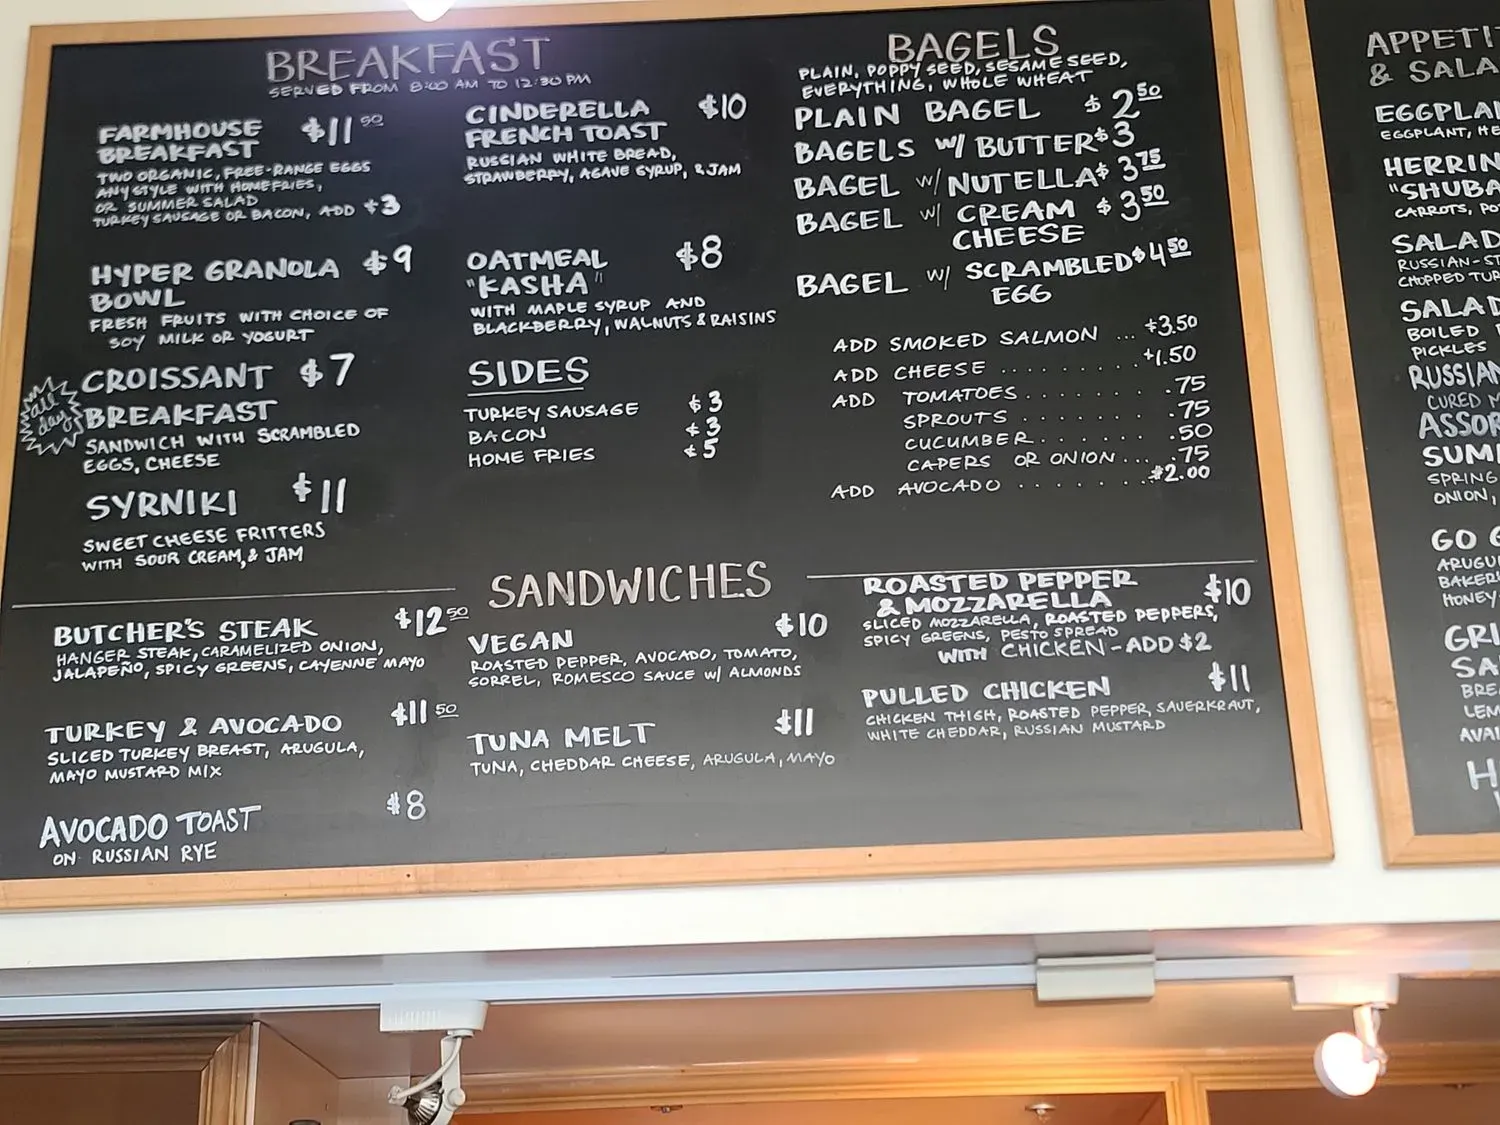 BREAKFAST
SERVED FROM 8:00 AM TO 12:30 PM
FARMHOUSE $11 50
BREAKFAST
TWO ORGANIC, FREE-RANGE EGGS
ANY STYLE WITH HOMEFRIES,
OR SUMMER SALAD
TURKEY SAUSAGE OR BACON, ADD +3
HYPER GRANOLA $9
BOWL
FRESH FRUITS WITH CHOICE OF
SOY MILK OR YOGURT
all day
CROISSANT $7
BREAKFAST
SANDWICH WITH SCRAMBLED
EGGS, CHEESE
SYRNIKI $11
SWEET CHEESE FRITTERS
WITH SOUR CREAM, & JAM
CINDERELLA $10
FRENCH TOAST
RUSSIAN WHITE BREAD,
STRAWBERRY, AGAVE SYRUP, & JAM
OATMEAL $8
"KASHA"
WITH MAPLE SYRUP AND
BLACKBERRY, WALNUTS & RAISINS
SIDES
TURKEY SAUSAGE $3
BACON $3
HOME FRIES $5
BAGELS
PLAIN, POPPY SEED, SESAME SEED,
EVERYTHING, WHOLE WHEAT
PLAIN BAGEL $2 50
BAGELS W/ BUTTER $3
BAGEL W/ NUTELLA $3 75
BAGEL W/ CREAM $3 50
CHEESE
BAGEL W/ SCRAMBLED $4 50
EGG
ADD SMOKED SALMON ... +3.50
ADD CHEESE .......... +1.50
ADD TOMATOES........ .75
SPROUTS ....... .75
CUCUMBER....... .50
CAPERS OR ONION.... .75
ADD AVOCADO ........ $2.00
SANDWICHES
BUTCHER'S STEAK $12 50
HANGER STEAK, CARAMELIZED ONION,
JALAPEÑO, SPICY GREENS, CAYENNE MAYO
TURKEY & AVOCADO $11 50
SLICED TURKEY BREAST, ARUGULA,
MAYO MUSTARD MIX
AVOCADO TOAST $8
ON RUSSIAN RYE
VEGAN $10
ROASTED PEPPER, AVOCADO, TOMATO,
SORREL, ROMESCO SAUCE W/ ALMONDS
TUNA MELT $11
TUNA, CHEDDAR CHEESE, ARUGULA, MAYO
ROASTED PEPPER $10
& MOZZARELLA
SLICED MOZZARELLA, ROASTED PEPPERS,
SPICY GREENS, PESTO SPREAD
WITH CHICKEN - ADD $2
PULLED CHICKEN $11
CHICKEN THIGH, ROASTED PEPPER, SAUERKRAUT,
WHITE CHEDDAR, RUSSIAN MUSTARD
& SALA
EGGPLAN
EGGPLANT, HE
HERRIN
"SHUBA
CARROTS, PO
SALAD
RUSSIAN-ST
CHOPPED TUR
SALAD
BOILED
PICKLES
RUSSIAN
CURED M
ASSOR
SUM
SPRING
ONION,
GO G
ARUGU
BAKER
HONEY
GRI
SA
BRE
LEM
AVAI